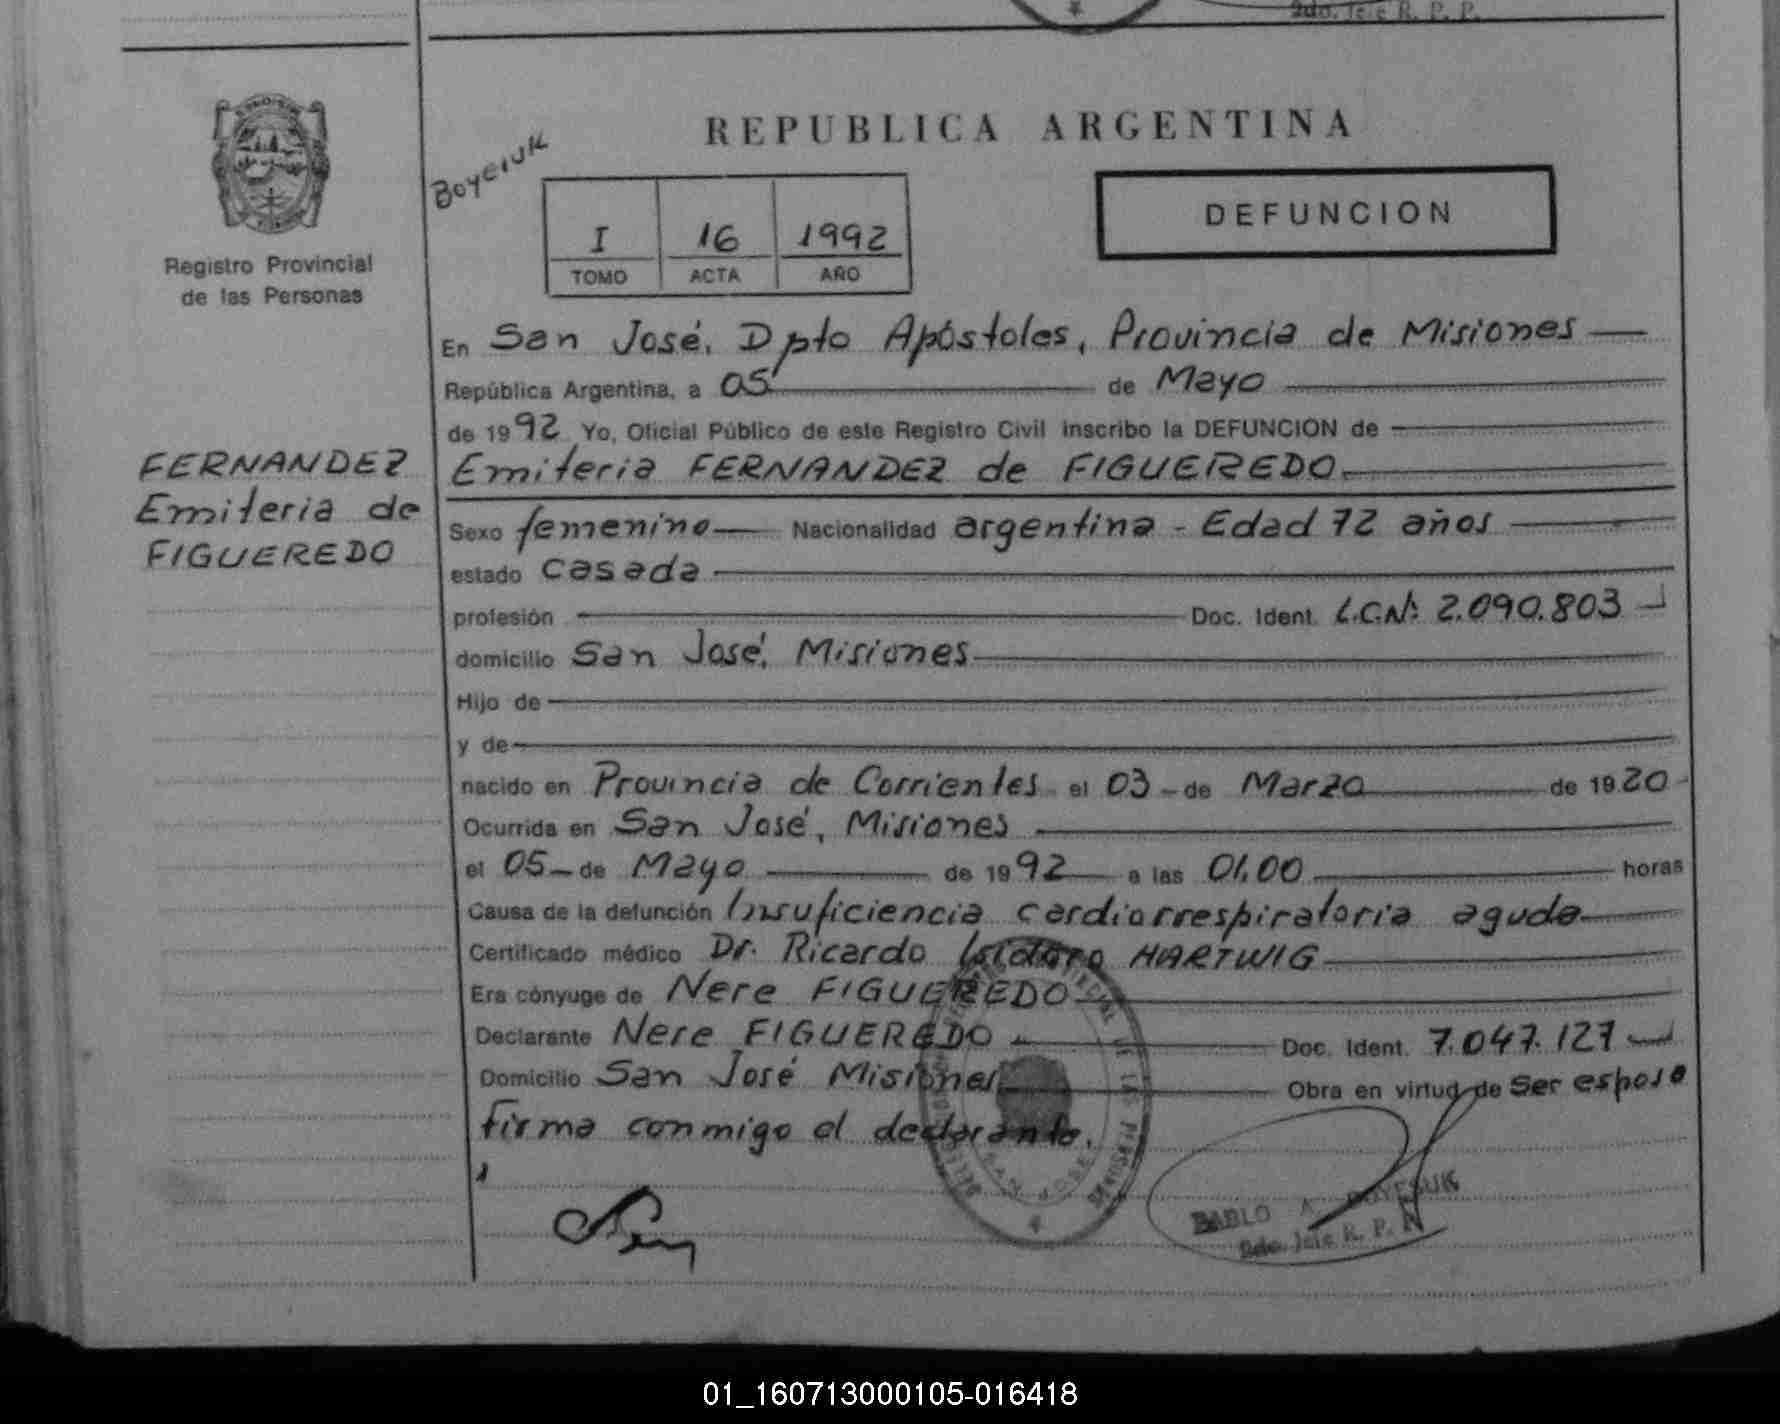 2do. Jefe R. P. P.
REPUBLICA ARGENTINA
Boyeiuk
DEFUNCION
I 16 1992
TOMO ACTA AÑO
Registro Provincial
de las Personas
En San José, Dpto Apóstoles, Provincia de Misiones
República Argentina, a 05 de Mayo
de 1992 Yo, Oficial Público de este Registro Civil inscribo la DEFUNCION de
Emiteria FERNANDEZ de FIGUEREDO
FERNANDEZ
Emiteria de
FIGUEREDO
Sexo femenino Nacionalidad argentina - Edad 72 años
estado casada
profesión Doc. Ident. L.C.Nº: 2.090.803
domicilio San José, Misiones
Hijo de
y de
nacido en Provincia de Corrientes el 03 de Marzo de 1920
Ocurrida en San José, Misiones
el 05 de Mayo de 1992 a las 01,00 horas
Causa de la defunción Insuficiencia cardiorrespiratoria aguda
Certificado médico Dr. Ricardo Isidoro HARTWIG
Era cónyuge de Nere FIGUEREDO
Declarante Nere FIGUEREDO Doc. Ident. 7.047.127
Domicilio San José Misiones Obra en virtud de ser esposo
firma conmigo el declarante.
SAN JOSE
PABLO A. BOYESUK
2do. Jefe R. P. P.
01_160713000105-016418